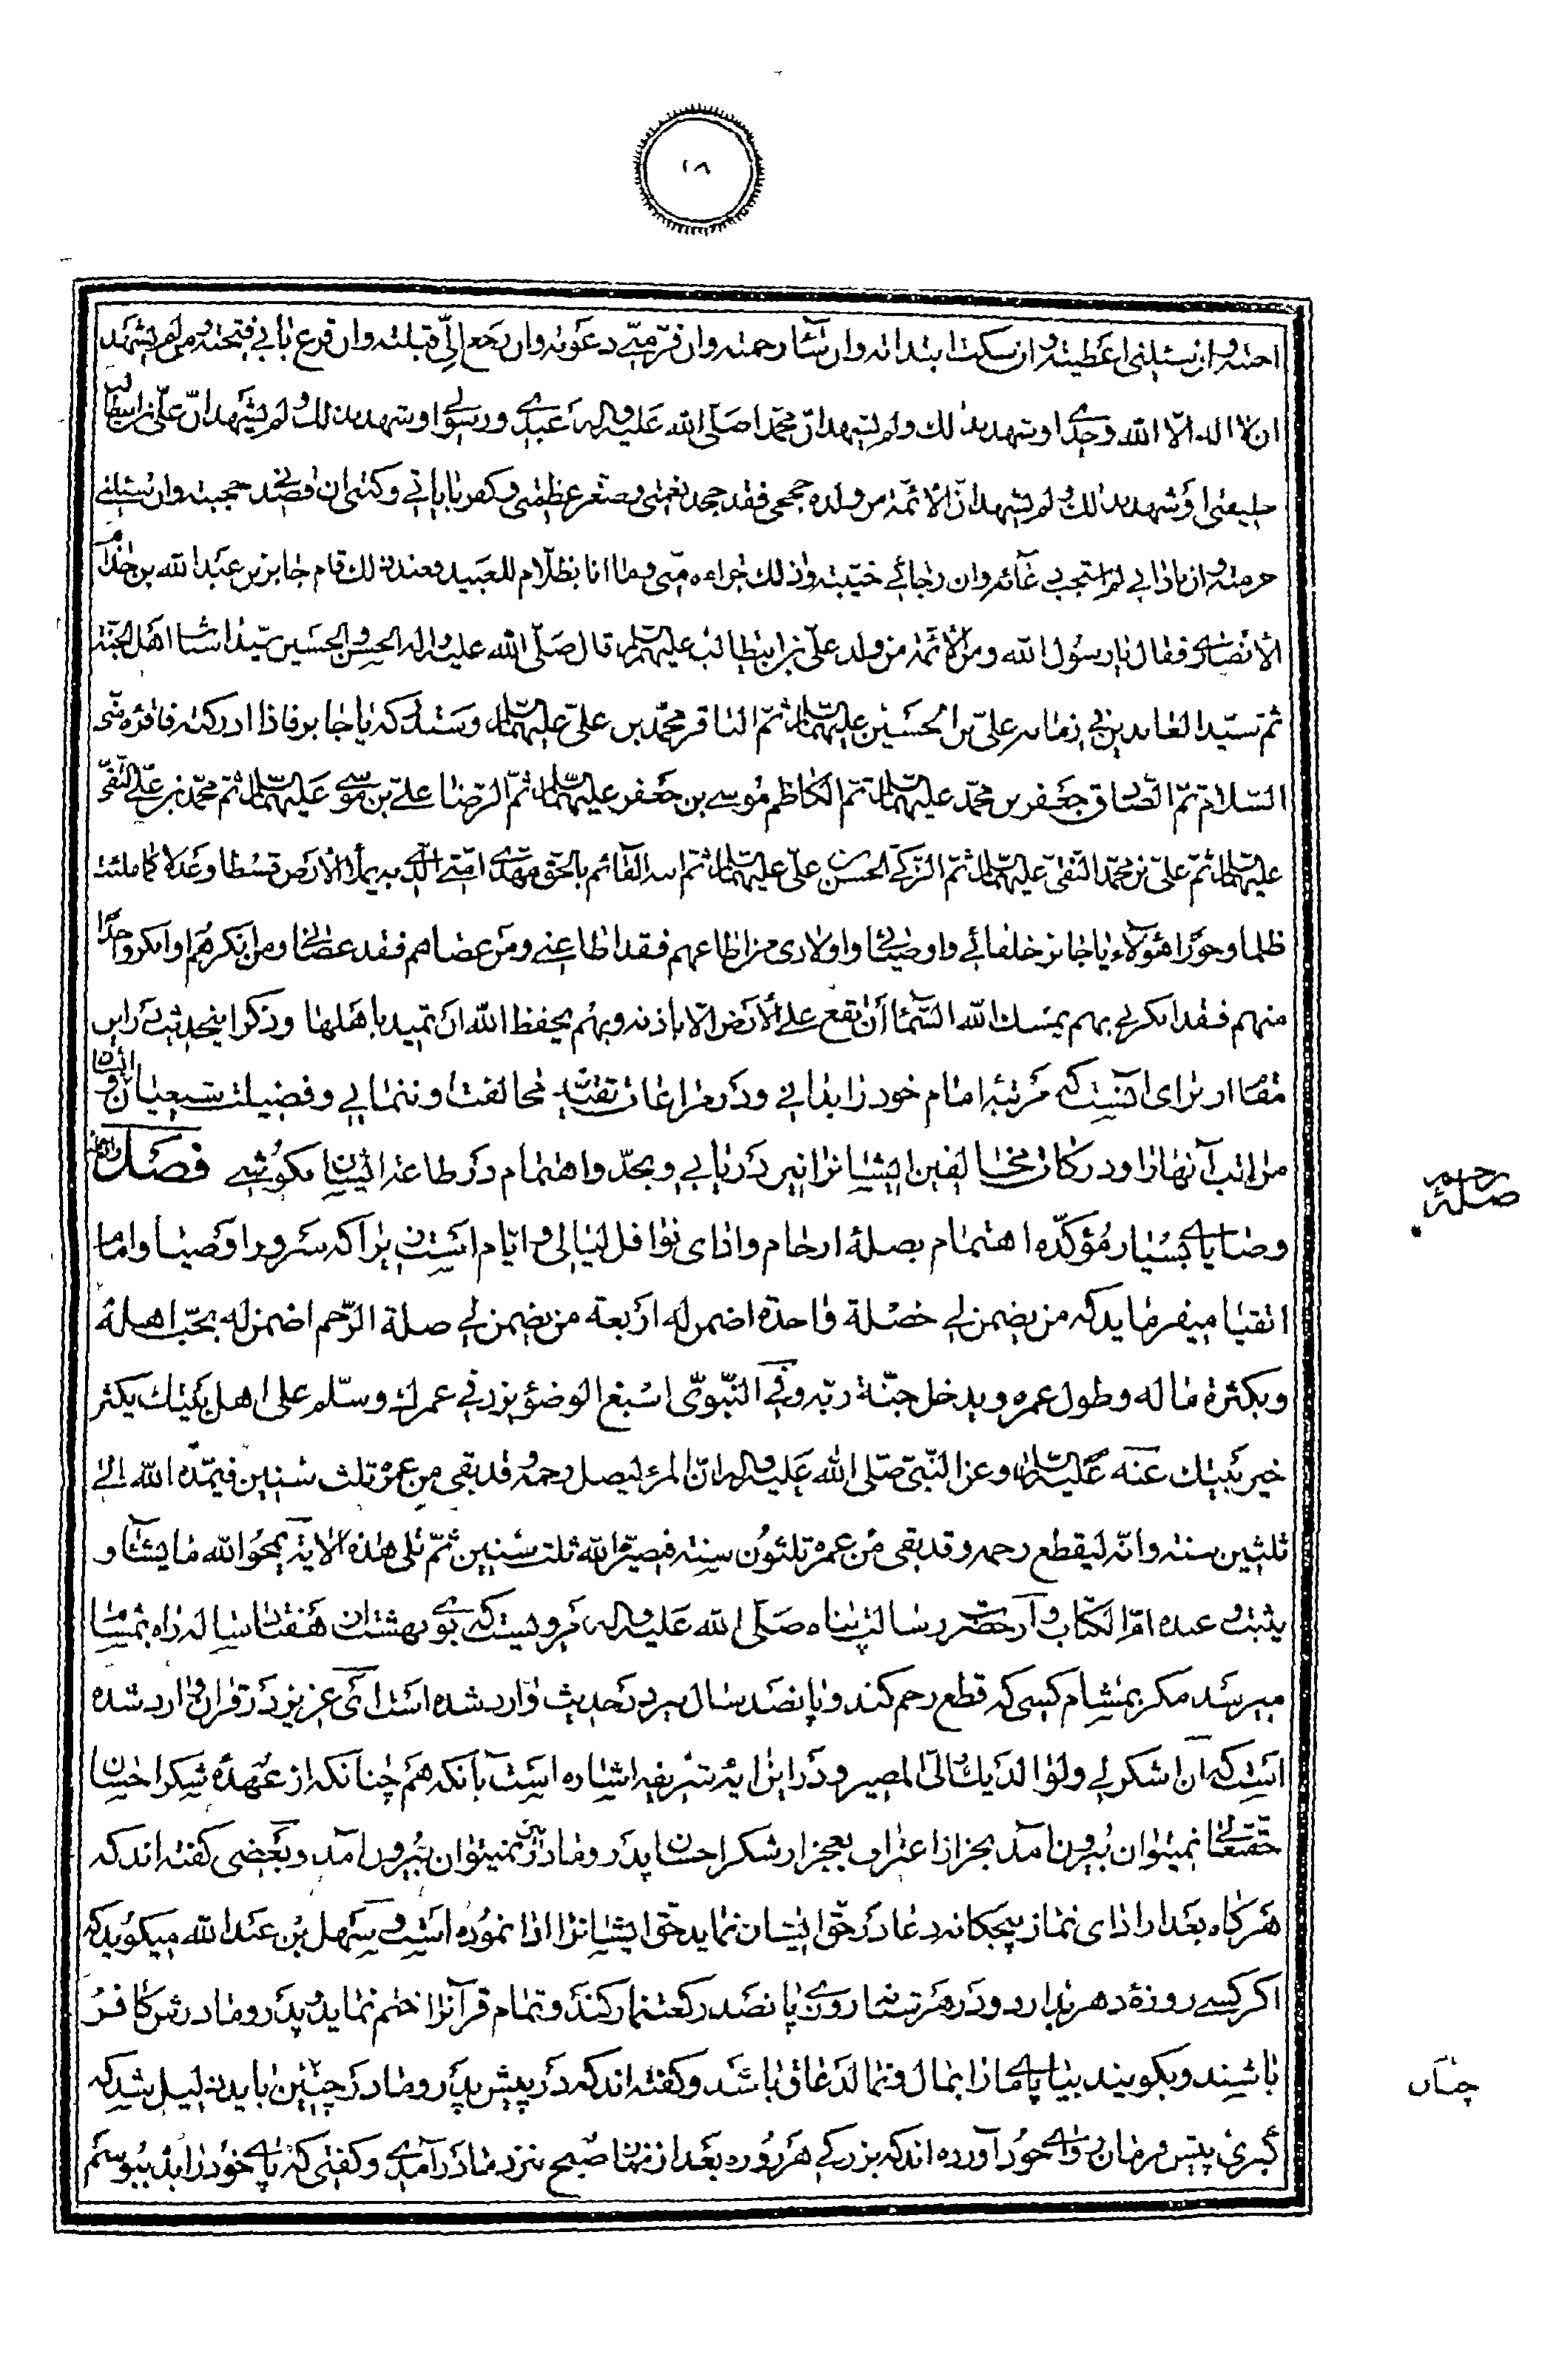 ١٨
اجبته و ان سئلنی اعطیته و ان سکت ابتدائه و ان اساء رحمته و ان فرّ منّی دعوته و ان رجع الیّ قبلته و ان قرع بابی فتحته و من لم یشهد
ان لا اله الّا الله وحدی او شهد بذلک و لم یشهد انّ محمّدا صلّی الله علیه و اله عبدی و رسولی او شهد بذلک و لم یشهد انّ علیّ بن ابیطالب
خلیفتی او شهد بذلک و لم یشهد انّ الائمّة من ولده حججی فقد جحد نعمتی و صغّر عظمتی و کفر بایاتی و کتبی ان قصدنی حجبته و ان سئلنی
حرمته و ان نادانی لم استجب دعائه و ان رجائی خیّبته و ذلک جزاءه منّی و ما انا بظلّام للعبید و عند ذلک قام جابر بن عبد الله بن حزام
الانصاری فقال یا رسول الله و من الائمّة من ولد علیّ بن ابیطالب علیهم السّلم قال صلّی الله علیه و اله الحسن و الحسین سیّدا شباب اهل الجنّة
ثم سیّد العابدین فی زمانه علیّ بن الحسین علیهما السّلم ثمّ الباقر محمّد بن علیّ علیهما السّلم و ستدرکه یا جابر فاذا ادرکته فاقرئه منّی
السّلام ثمّ الصّادق جعفر بن محمّد علیهما السّلم ثمّ الکاظم موسی بن جعفر علیهما السّلم ثمّ الرّضا علیّ بن موسی علیهما السّلم ثم محمّد بن علیّ التّقی
علیهما السّلم ثمّ علیّ بن محمّد النّقی علیهما السّلم ثمّ الزّکیّ الحسن بن علیّ علیهما السّلم ثمّ ابنه القائم بالحقّ مهدیّ امّتی الّذی به یملأ الارض قسطا و عدلا کما ملئت
ظلما و جورا هؤلاء یا جابر خلفائی و اوصیائی و اولادی من اطاعهم فقد اطاعنی و من عصاهم فقد عصانی و من انکرهم او انکر واحدا
منهم فقد انکرنی بهم یمسک الله السّماء ان تقع علی الارض الّا باذنه و بهم یحفظ الله ان تمید باهلها و ذکر اینحدیث در این
مقام از برای آنست که مرتبه امام خود را بدانی و در مراعات تقیّه مخالفت او ننمایی و فضیلت شیعیان و
مراتب آنها را و درکات مخالفین ایشانرا نیز دریابی و بجدّ و اهتمام در طاعة ایشان بکوشی فصل
وصایای بسیار مؤکّده اهتمام بصله ارحام و ادای نوافل لیالی و ایّام است زیرا که سرور اوصیا و امام
اتقیا میفرماید که من یضمن لی خصلة واحدة اضمن له اربعة من یضمن لی صلة الرّحم اضمن له بحبّ اهله
و بکثرة ماله و طول عمره و یدخل جنّة ربّه و فی النّبوّی اسبغ الوضوء یزد فی عمرک و سلّم علی اهل بیتک یکثر
خیر بیتک عنه علیه السّلم و عن النّبیّ صلّی الله علیه و اله انّ المرء لیصل رحمه و قد بقی من عمره ثلث سنین فیمدّه الله الی
ثلثین سنته و انّه لیقطع رحمه و قد بقی من عمره ثلثون سنة فیصیّره الله ثلث سنین ثمّ تلی هذه الایة یمحو الله ما یشاء و
یثبت و عنده امّ الکتاب و از حضرت رسالت پناه صلّی الله علیه و اله مرویست که بوی بهشت از هفتاد ساله راه بمشام
میرسد مکر بمشام کسی که قطع رحم کند و پانصد سال نیز در حدیث وارد شده است ای عزیز در قران وارد شده
است که ان اشکر لی و لوالدیک الیّ المصیر و در این ایه شریفه اشاره است بانکه هم چنانکه از عهده شکر احسان
حقتعالی نمیتوان بیرون آمد بجز از اعتراف بعجز از شکر احسان پدر و مادر نیز نمیتوان بیرون آمد و بعضی کفته اند که
هر کاه بعد از ادای نماز پنجکانه دعا در حقّ ایشان نماید حقّ ایشانرا ادا نموده است و سهل بن عبد الله میکوید که
اکر کسی روزه دهر بدارد و در هر شبانه روزی پانصد رکعت نماز کند و تمام قرآنرا ختم نماید و پدر و مادرش کافر
باشند و بکویند بیا پای ما را بمال و نمالد عاق باشد و کفته اند که در پیش پدر و مادر چنین باید ذلیل شد که
کبری پیش فرمان روای خود آورده اند که بزرکی هر روزه بعد از نماز صبح بنزد مادر آمدی و کفتی که پای خود را بده ببوسم
صله رحم
چنان